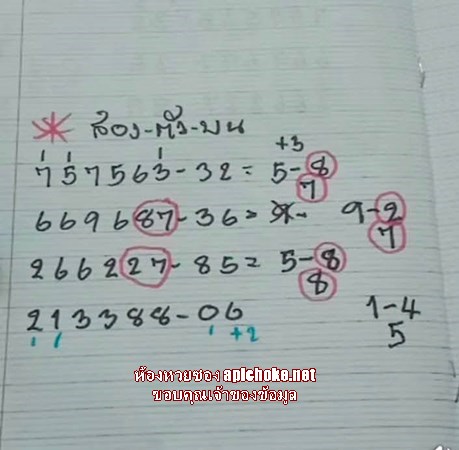 * สอง-ตัว-บน
+3
757563-32= 5-8
7
669687-36= X- 9-2
7
266227-85= 5-8
8
213388-06 1-4
+2 5
ห้องหวยซอง apichoke.net
ขอบคุณเจ้าของข้อมูล